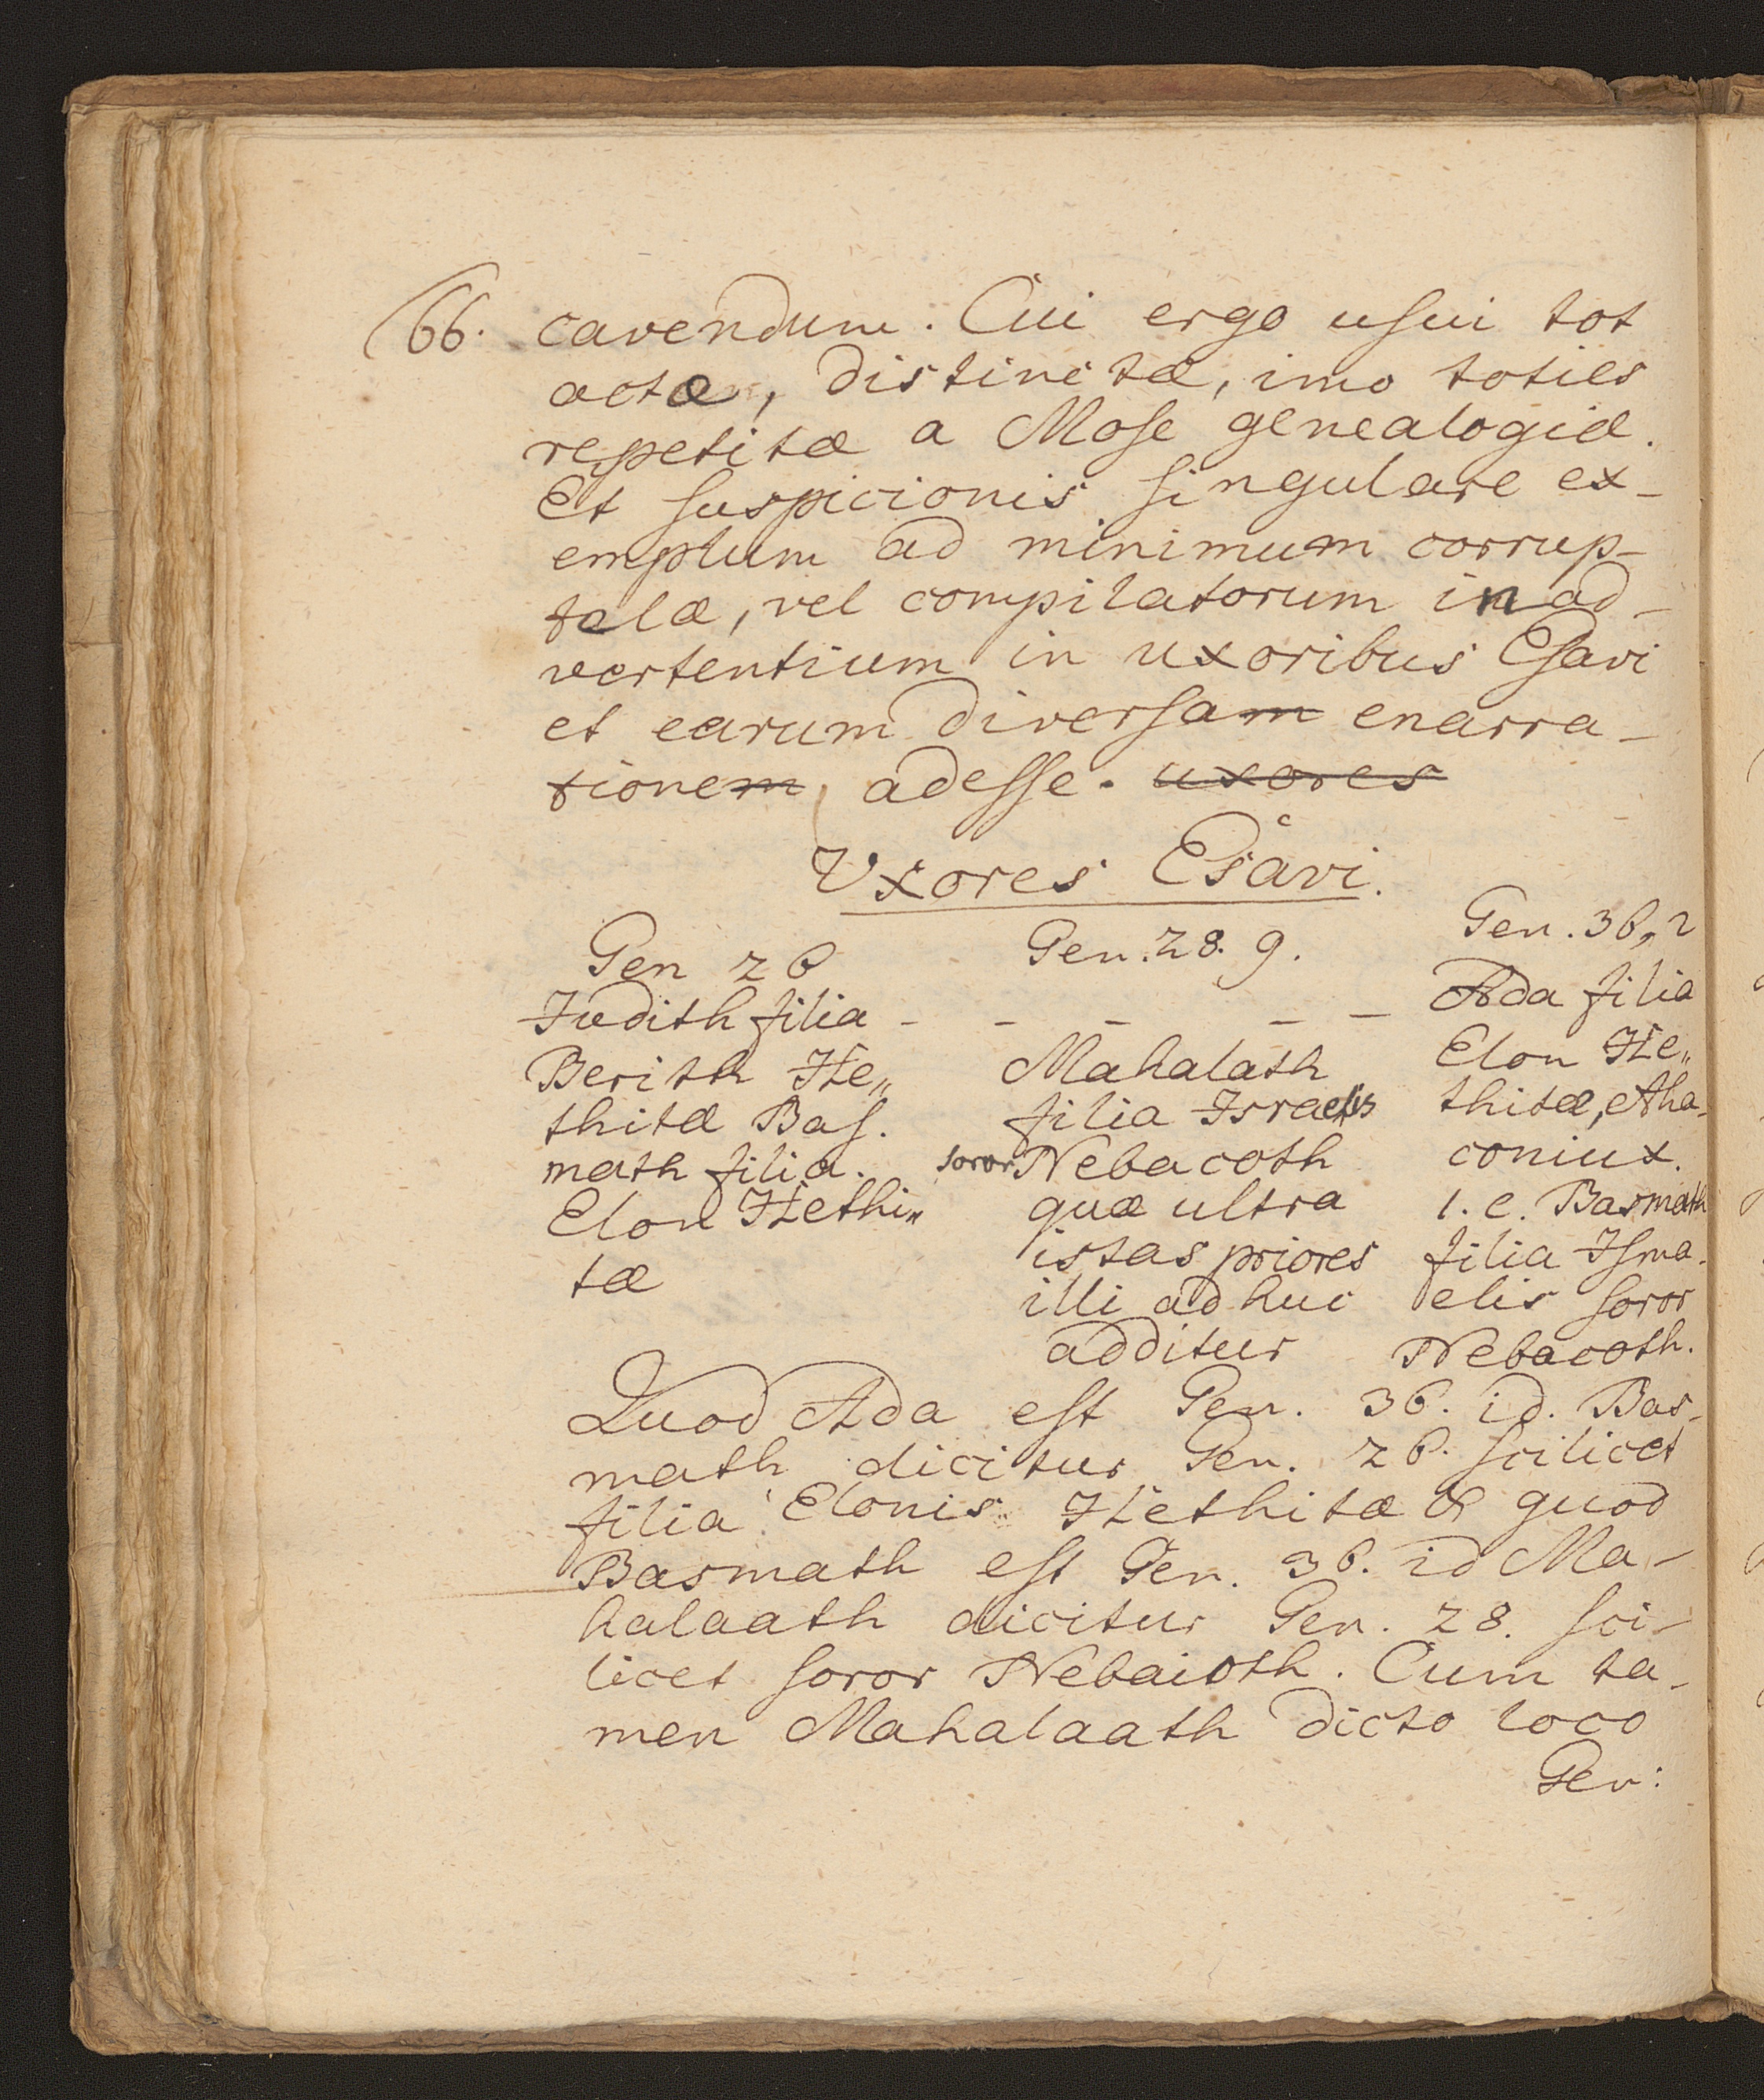 66. cavendum. Cui ergo uſui tot
actæ, distinctæ, imo toties
repetitæ a Moſe genealogiæ.
Et ſuspicionis ſingulare ex-
emplum ad minimum corrup-
telæ, vel compilatorum inad-
vertentium in uxoribus Eſavi
et earum diverſam enarra-
tionem, adeſſe. uxores
Vxores Esavi.
Gen 26
Judith filia - - - - -
Berith He„
thitæ Baſ.
math filia.
Elon Hethi„
tæ
Gen. 28. 9.
Mahalath
filia Israelis
soror Nebacoth
quæ ultra
istas priores
illi adhuc
additur
Gen. 36, 2
Ada filia
Elon He„
thitæ, Aha-
coniux.
1. e. Basmath
filia Iſma-
elis ſoror
Nebacoth.
Quod Ada eſt Gen. 36. id. Bas-
math dicitur Gen. 26. ſcilicet
filia Elonis Hethitæ & quod
Basmath eſt Gen. 36. id Ma-
halaath dicitur Gen. 28. ſci-
licet ſoror Nebaioth. Cum ta-
men Mahalaath dicto loco
Gen: